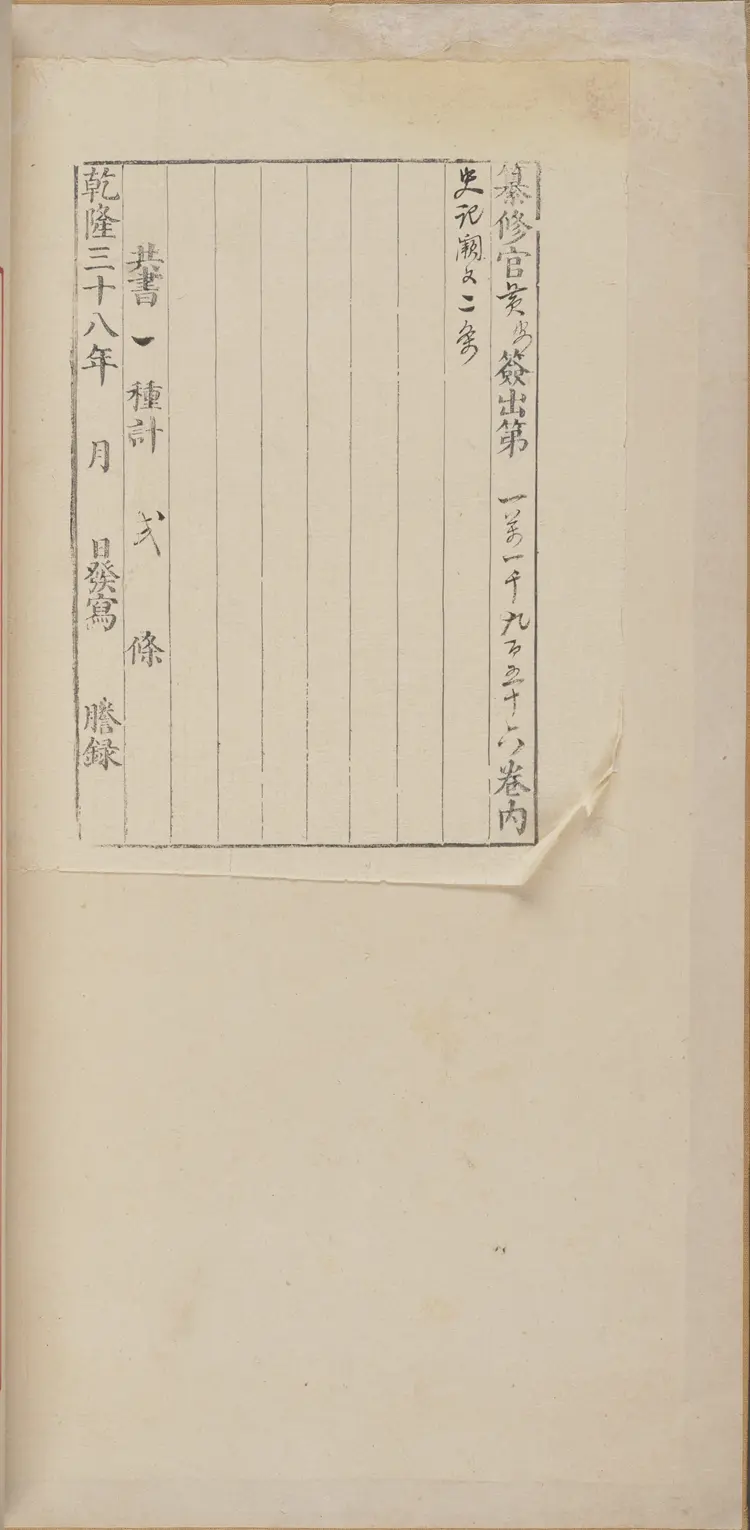 纂修官黃 簽出第 一万一千九百五十六卷内
史記闕文二条
共書 一 種計 弍 條
乾隆三十八年 月 日發寫 謄録